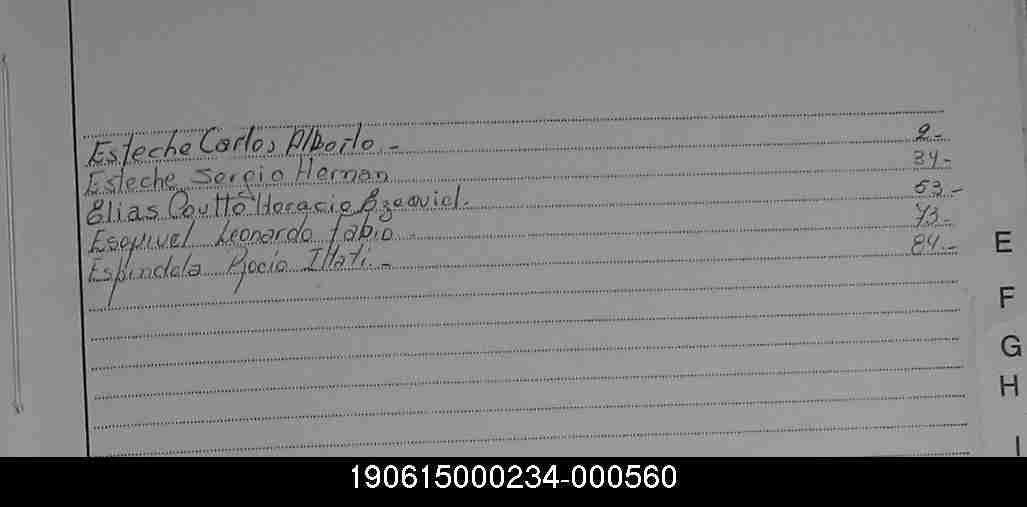 Esteche Carlos Alberto - 2-
Esteche Sergio Hernan 34-
Elias Coutto Horacio Ezequiel. 53-
Esquivel Leonardo fabio - 73-
Espindola Rocio Itati - 84-
E
F
G
H
I
190615000234-000560